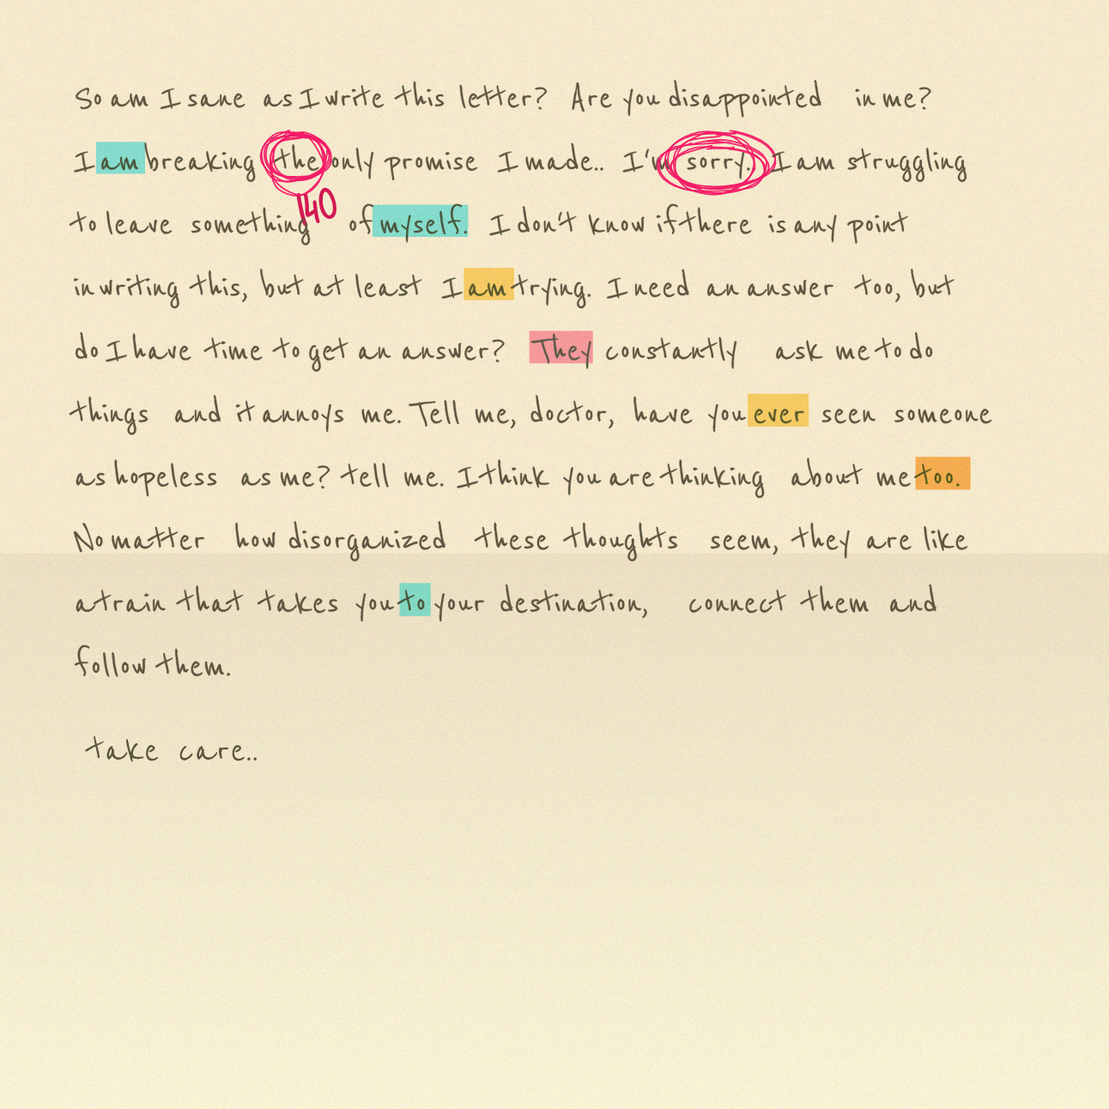 So am I sane as I write this letter? Are you disappointed in me?
I am breaking the only promise I made.. I'm sorry. I am struggling
140
to leave something of myself. I don't know if there is any point
in writing this, but at least I am trying. I need an answer too, but
do I have time to get an answer? They constantly ask me to do
things and it annoys me. Tell me, doctor, have you ever seen someone
as hopeless as me? tell me. I think you are thinking about me too.
No matter how disorganized these thoughts seem, they are like
a train that takes you to your destination, connect them and
follow them.
take care..